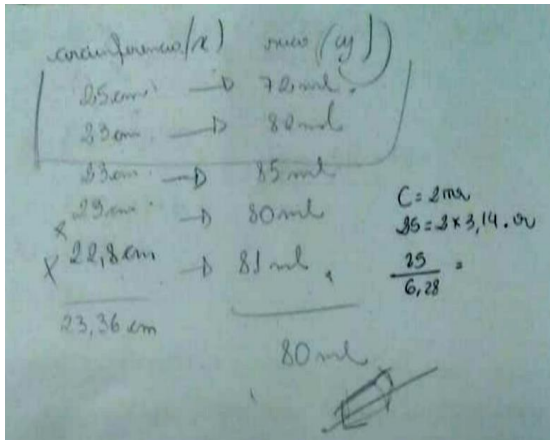 circunferencia (x) suco (y)
25cm → 72 ml.
23cm → 82 ml
23cm → 85 ml
x 23cm → 80 ml
x 22,8cm → 81 ml
23,36 cm
80 ml
C = 2πr
25 = 2 x 3,14 . r
25
6,28 =